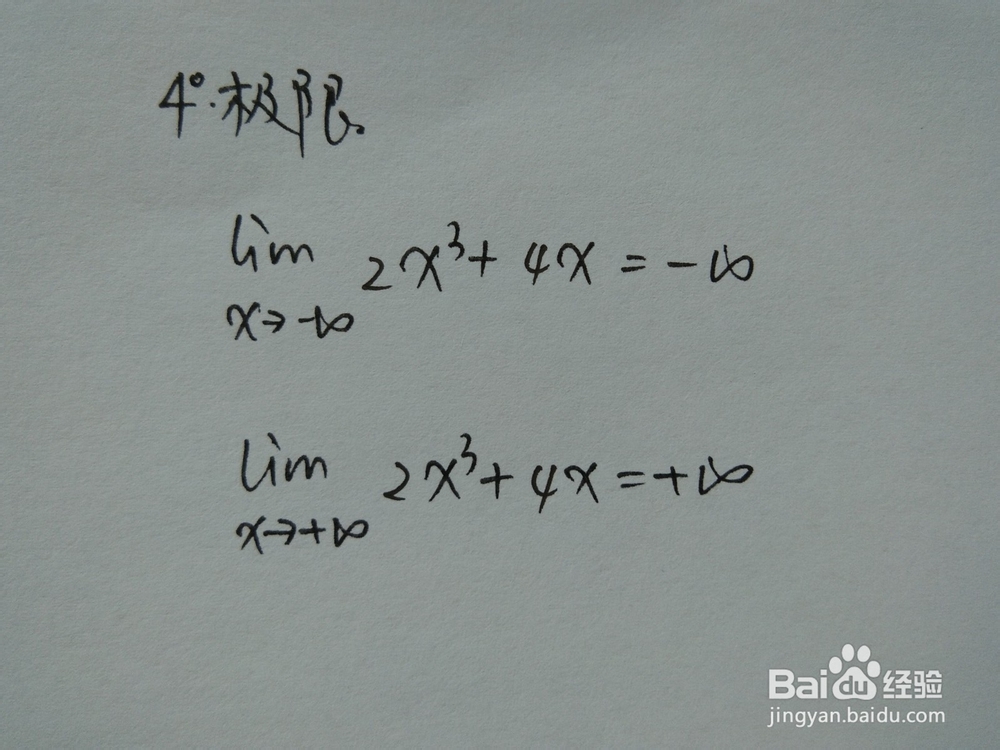 4°.极限.
lim 2x³+4x=-∞
x→-∞
lim 2x³+4x=+∞
x→+∞
Baidu经验
jingyan.baidu.com